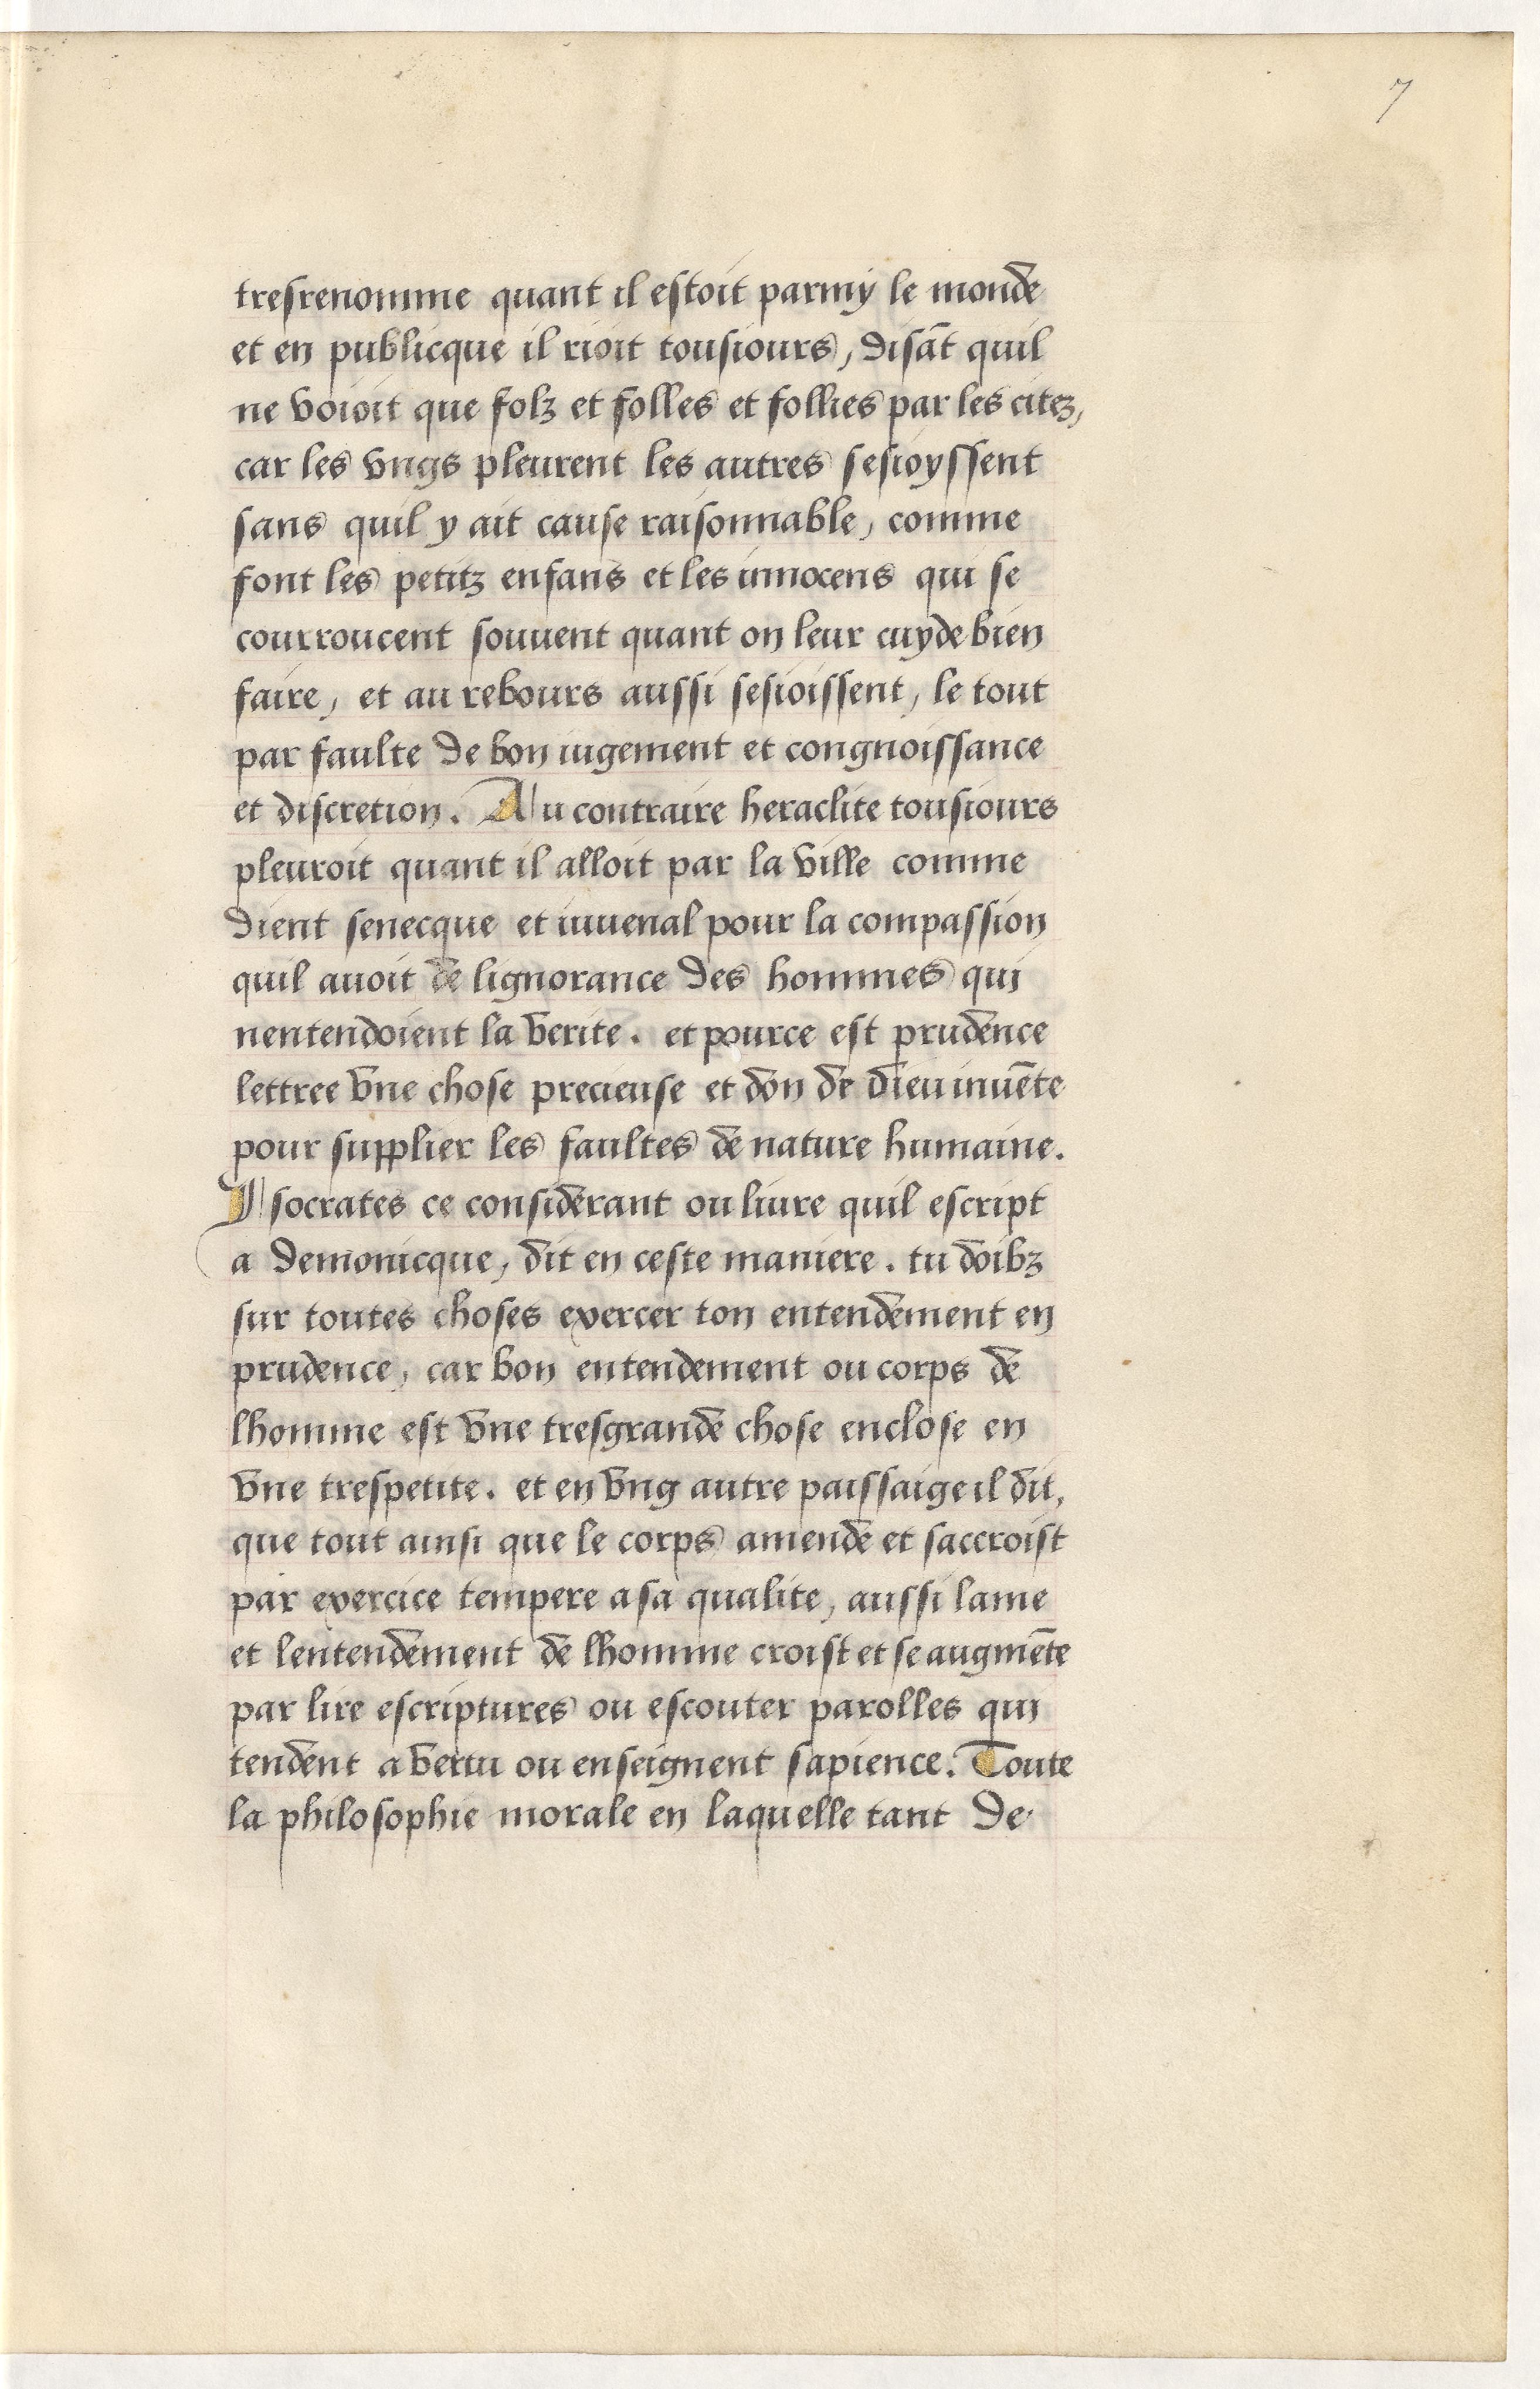 7
tresrenomme quant il estoit parmy le monde
et en publicque il rioit tousiours, disāt quil
ne voioit que folz et folles et follies par les citez,
car les vngs pleurent les autres sesioyssent
sans quil y ait cause raisonnable, comme
font les petitz enfans et les innocens qui se
courroucent souuent quant on leur cuyde bien
faire, et au rebours aussi sesioissent, le tout
par faulte de bon iugement et congnoissance
et discretion. Au contraire heraclite tousiours
pleuroit quant il alloit par la ville comme
dient senecque et iuuenal pour la compassion
quil auoit de lignorance des hommes qui
nentendoient la verite. et pource est prudence
lettree vne chose precieuse et don de dieu inuēte
pour supplier les faultes de nature humaine.
Isocrates ce considerant ou liure quil escript
a demonicque, dit en ceste maniere. tu doibz
sur toutes choses exercer ton entendement en
prudence, car bon entendement ou corps de
lhomme est vne tresgrande chose enclose en
vne trespetite. et en vng autre paissaige il dit,
que tout ainsi que le corps amende et saccroist
par exercice tempere a sa qualite, aussi lame
et lentendement de lhomme croist et se augmēte
par lire escriptures ou escouter parolles qui
tendent a vertu ou enseignent sapience. Toute
la philosophie morale en laquelle tant de